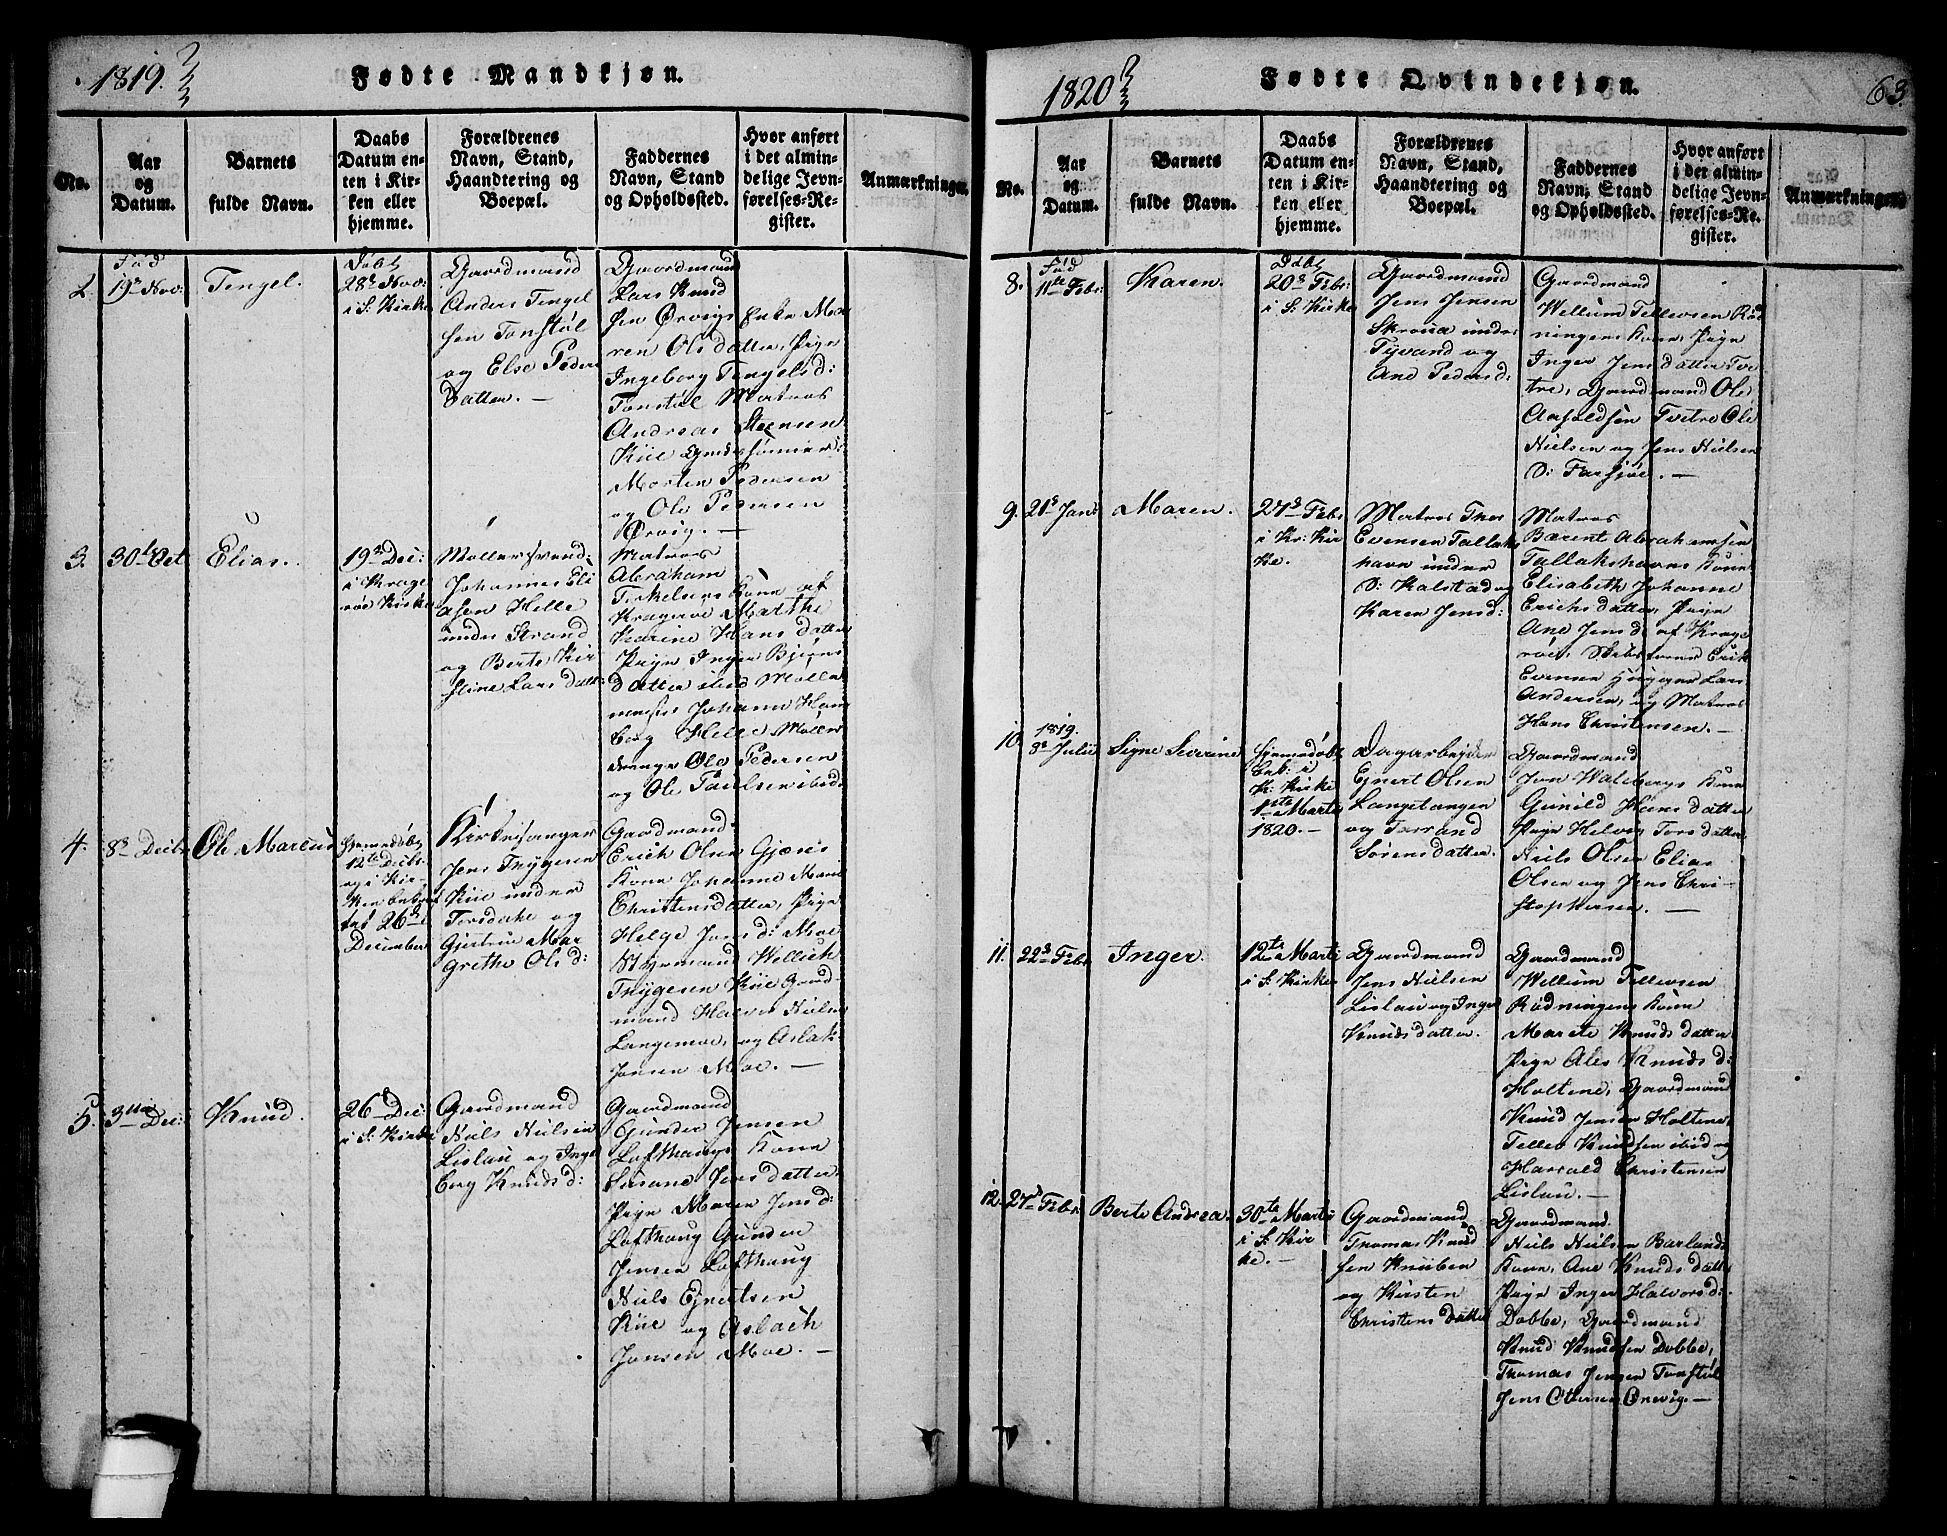 1819.
Fødte Mandkjøn.
No.
Aar
og
Datum.
Barnets
fulde Navn.
Daabs
Datum en-
ten i Kir-
ken eller
hjemme.
Forældrenes
Navn, Stand,
Haandtering og
Boepæl.
Faddernes
Navn, Stand
og Opholdssted.
Hvor anført
i det almin-
delige Jevn-
førelses-Re-
gister.
Anmærkninger.
2.
Fød
19de Nov:
Tengel.
Døbt
28de Nov:
i S: Kirke
Gaardmand
Anders Tengel
sen Tonstøl
og Else Peders
datter. —
Gaardmand
Lars Knud
sen Ørvigs Enke Ma
ren Olsdatter, Pige
Ingeborg Tengelsd:
Tonstøl Matros
Andreas Steensen
Kiie
Morten Pedersen
og Ole Pedersen
Ørvig. —
3.
30te Oct
Elias.
19de Dec:
i Krage
røe Kirke
Møllersvend
Johannes Eli
asen Helle
under Strand
og Berte Kir
stine Larsdatt:
Matros
Abraham
Terkelsens Kone af
Kragerøe Marthe
Karine Hansdatter
Pige Inger Biørns
datter ibid Møller
mester Johann Han
berg Helle Møller
drenge Ole Pedersen
og Ole Paulsen ibid:
4.
8de Decbr
Ole Marcus
Hjemmedøbt
12te Decbr.
og i Kir-
ken bekræf
tet 26de
December
Kirkesanger
Jens Thygesen
Kiie under
Torsdale og
Gjertrue Mar
grethe Olsd:
Gaardmand
Erich Olsen Gjæsø
Kone Johanne Marie
Christensdatter, Pige
Helge Jonsd: Moe
Styrmand Wellich
Thygesen Kiie Gaard
mand Halvor Nielsen
Langemoe, og Aslak
Jonsen Moe. —
5.
3die Dec:
Knud.
26de Dec:
i S: Kirke
Gaardmand
Niels Nielsen
Lislau og Inge
borg Knudsd:
Gaardmand
Gunder Jensen
Lofthaugs Kone
Susane Jensdatter
Pige Maren Jensd:
Lofthaug Gunder
Jensen Lofthaug
Niels Ejvertsen
Kiie og Aslach
Jonsen Moe. —
1820
Fødte Qvindekjøn.
63.
No.
Aar
og
Datum.
Barnets
fulde Navn.
Daabs
Datum en-
ten i Kir-
ken eller
hjemme.
Forældrenes
Navn, Stand,
Haandtering og
Boepæl.
Faddernes
Navn, Stand
og Opholdssted.
Hvor anført
i det almin-
delige Jevn-
førelses-Re-
gister.
Anmærkninger
8.
Fød
11te Febr:
Karen.
Døbt
20de Febr:
i S: Kirke
Gaardmand
Jens Jensen
Skroua under
Tyvand og
Ane Pedersd:
Gaardmand
Wellum Tellevsen Rød
ningens Kone, Pige
Inger Jensdatter Tve
tre, Gaardmand Ole
Aasoldsen Tvetre Ole
Nielsen og Jens Nielsen
O: Farsjøe. —
9.
21de Jan:
Maren.
27de Febr
i Kr: Kir
ke.
Matros Thor
Evensen Tallaks
havn under
O: Kalstad og
Karen Jensd:
Matros
Bærent Abrahamsen
Tallakshavns Kone
Elisabeth Johanne
Erichsdatter, Pige
Ane Jensd: af Krage
røe, Skibstømmerm Erik
Evensen Lars
Andersen, og Matros
Hans Christensen. —
10.
1819.
3de Julii
Signe Severine
Hjemmedøbt
Bek: i
K: Kirke
1ste Marti
1820. —
Dagarbejder
Ejvert Olsen
Langetangen
og Torrand
Sørensdatter.
Gaardmand
Jon Walbergs Kone
Gunild Hansdatter
Pige Helvig Torsdatter
Niels Olsen Elias
Olsen og Jens Chri-
stophersen. —
11.
22de Febr
Inger.
12te Marti
i S: Kirke
Gaardmand
Jens Nielsen
Lislau og Inger
Knudsdatter.
Gaardmand
Wellum Tellevsen
Rødningens Kone
Marete Knudsdatter
Pige Ales Knudsd:
Holtene, Gaardmand
Knud Jensen Holtene
Tellev Knudsen ibid og
Harrald Christensen
Lislau. —
12.
27de Febr
Berte Andrea.
30te Marti
i S: Kir
ke. —
Gaardmand
Thomas Knud
sen Knuben
og Kirsten
Christensdatter
Gaardmand
Niels Nielsen Barlands
Kone, Ane Knudsdatter
Pige Inger Halvorsd:
Dobbe, Gaardmand
Knud Knudsen Dobbe,
Thomas Jensen Tonstøl
Jens Ottersen Orevig. —